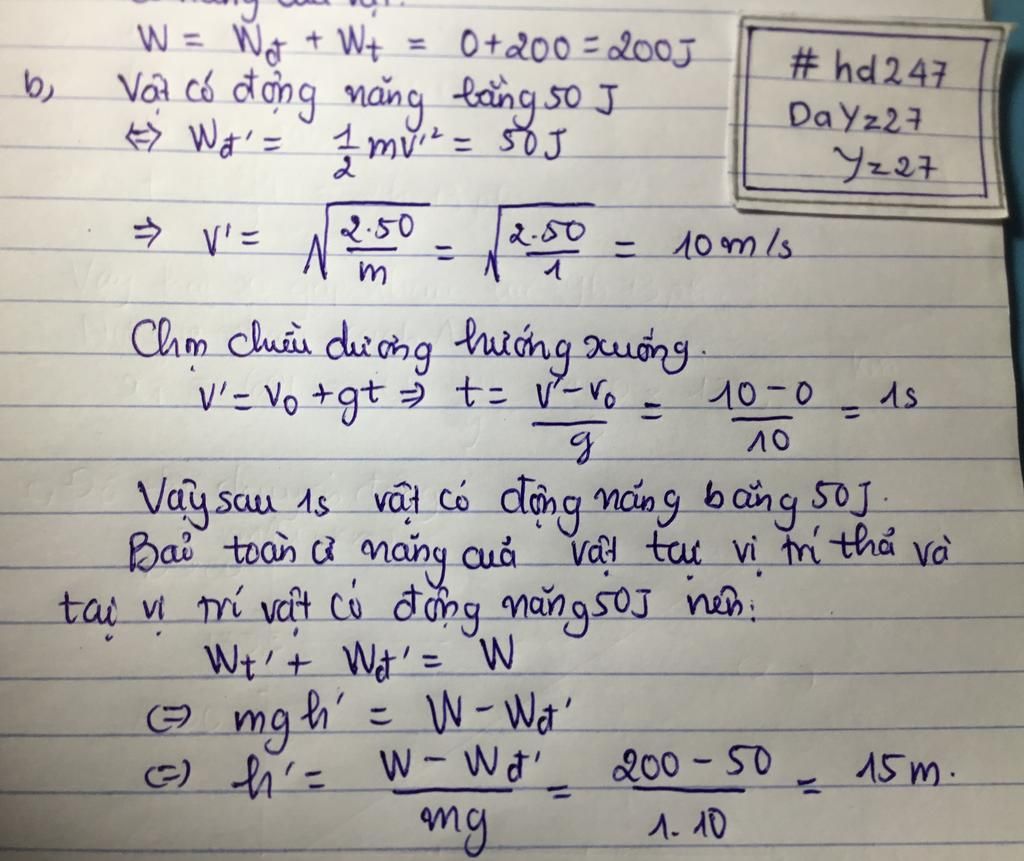 W = Wđ + Wt = 0 + 200 = 200J
b, Vật có động năng bằng 50 J
⇔ Wđ' = 1/2 mv'² = 50J
⇒ v' = √(2.50/m) = √(2.50/1) = 10 m/s
Chọn chiều dương hướng xuống.
v' = v₀ + gt ⇒ t = (v' - v₀)/g = (10 - 0)/10 = 1s
Vậy sau 1s vật có động năng bằng 50J.
Bảo toàn cơ năng của vật tại vị trí thả và
tại vị trí vật có động năng 50J nên:
Wt' + Wđ' = W
⇔ mgh' = W - Wđ'
⇔ h' = (W - Wđ')/mg = (200 - 50)/1.10 = 15 m.
#hd247
DaYz27
Yz27